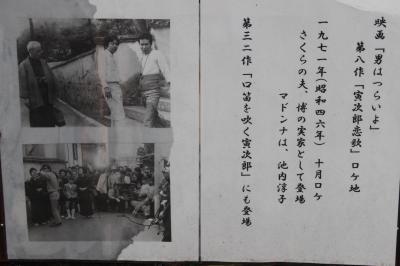 映画「男はつらいよ」
第八作「寅次郎恋歌」ロケ地
一九七一年(昭和四六年) 十月ロケ
さくらの夫、博の実家として登場
マドンナは、池内淳子
第三二作「口笛を吹く寅次郎」にも登場